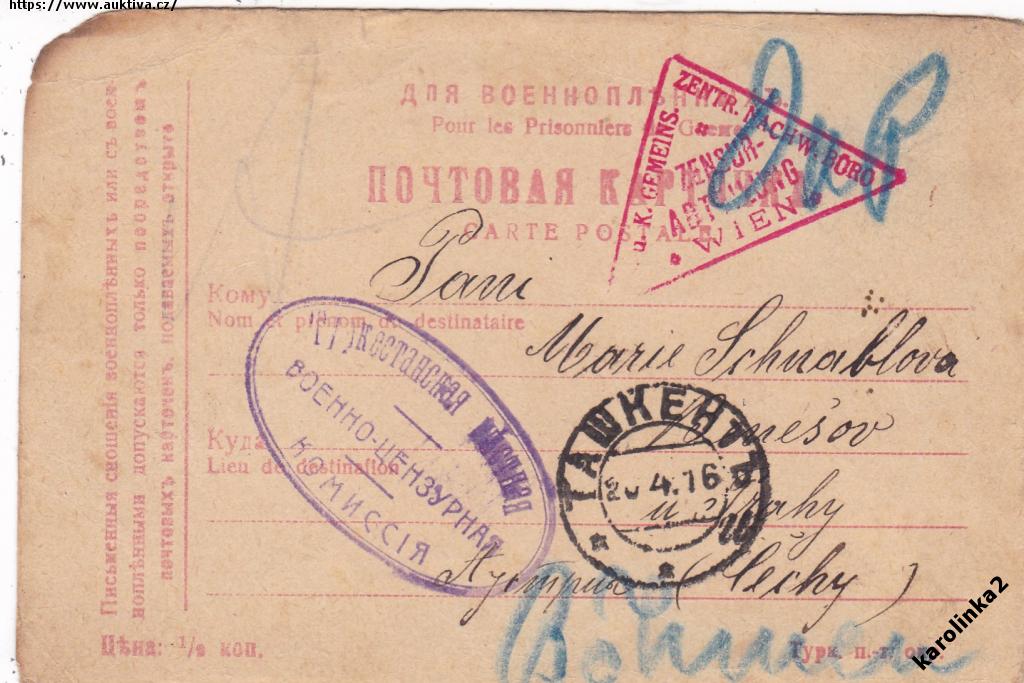 https://www.auktiva.cz/
ДЛЯ ВОЕННОПЛѢННЫХЪ.
Pour les Prisonniers de Guerre
ПОЧТОВАЯ КАРТОЧКА
CARTE POSTALE
u. K. GEMEINS. ZENTR. NACHW. BÜRO
ZENSUR-
ABTEILUNG
WIEN
Кому
Nom et prénom du destinataire
Paní
Marie Schnablova
Куда
Lieu de destination
u Prahy
Аустрия (Čechy)
Böhmen
Туркестанская
ВОЕННО-ЦЕНЗУРНАЯ
КОМИССІЯ
ТАШКЕНТЪ
4.16
Письменныя сношенія военноплѣнныхъ или съ воен-
ноплѣнными допускаются только посредствомъ
почтовыхъ карточекъ, подаваемыхъ открыто
Цѣна: ½ коп.
karolinka2